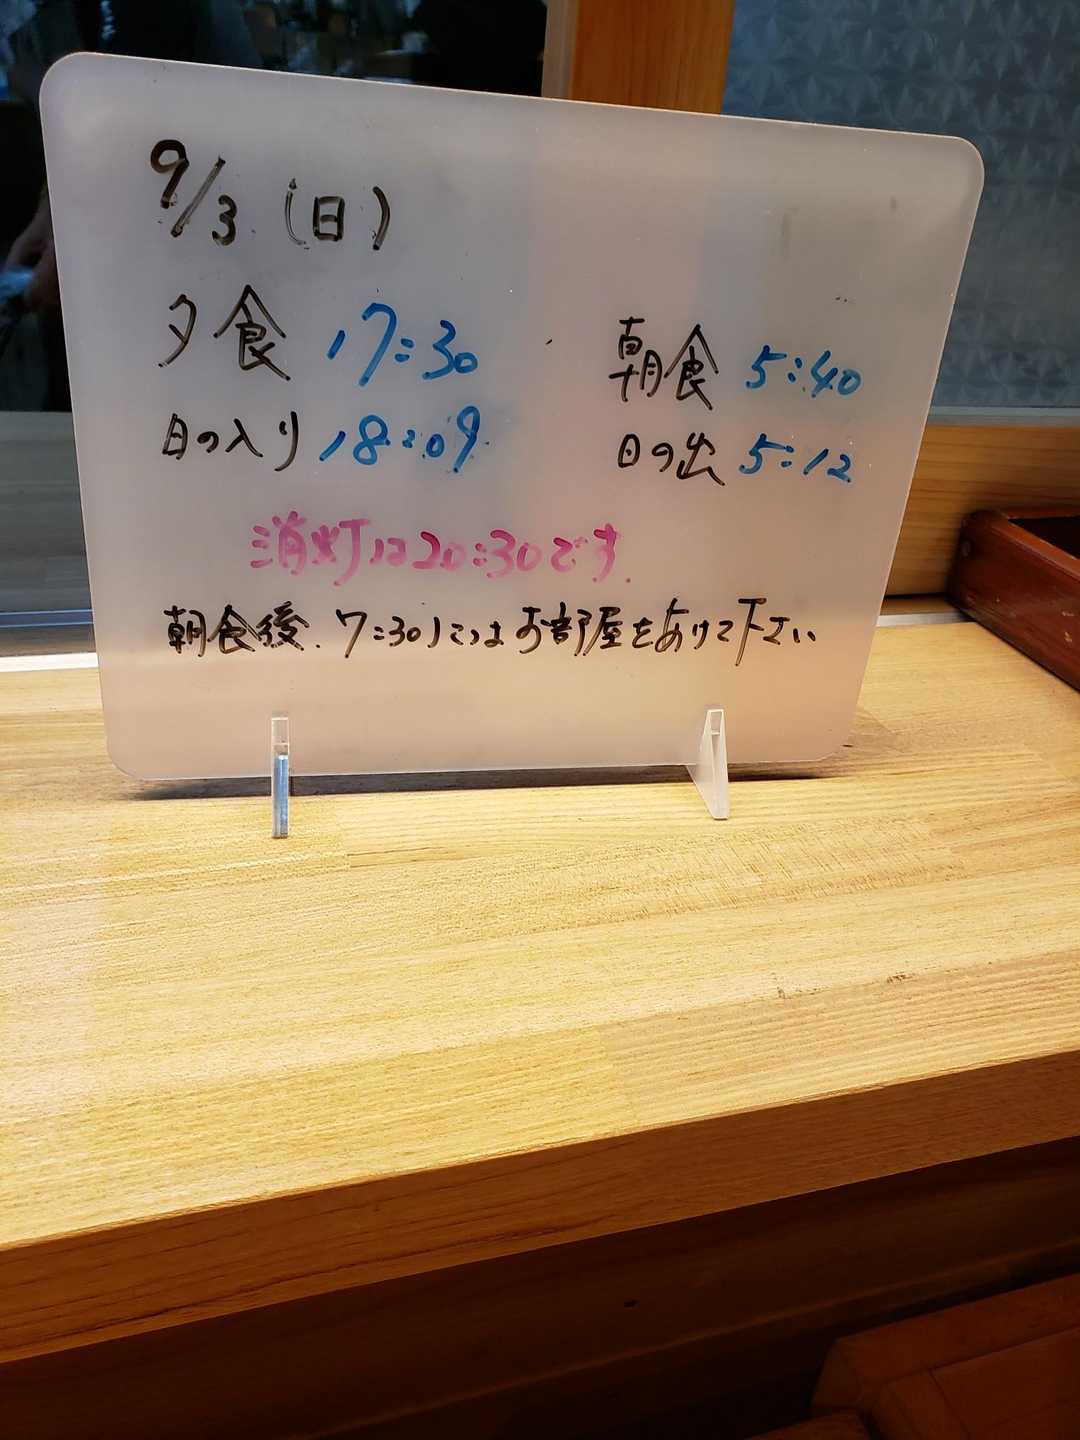 9/3 (日)
夕食 17:30
朝食 5:40
日の入り 18:09
日の出 5:12
消灯は20:30です.
朝食後、7:30にはお部屋をあけて下さい